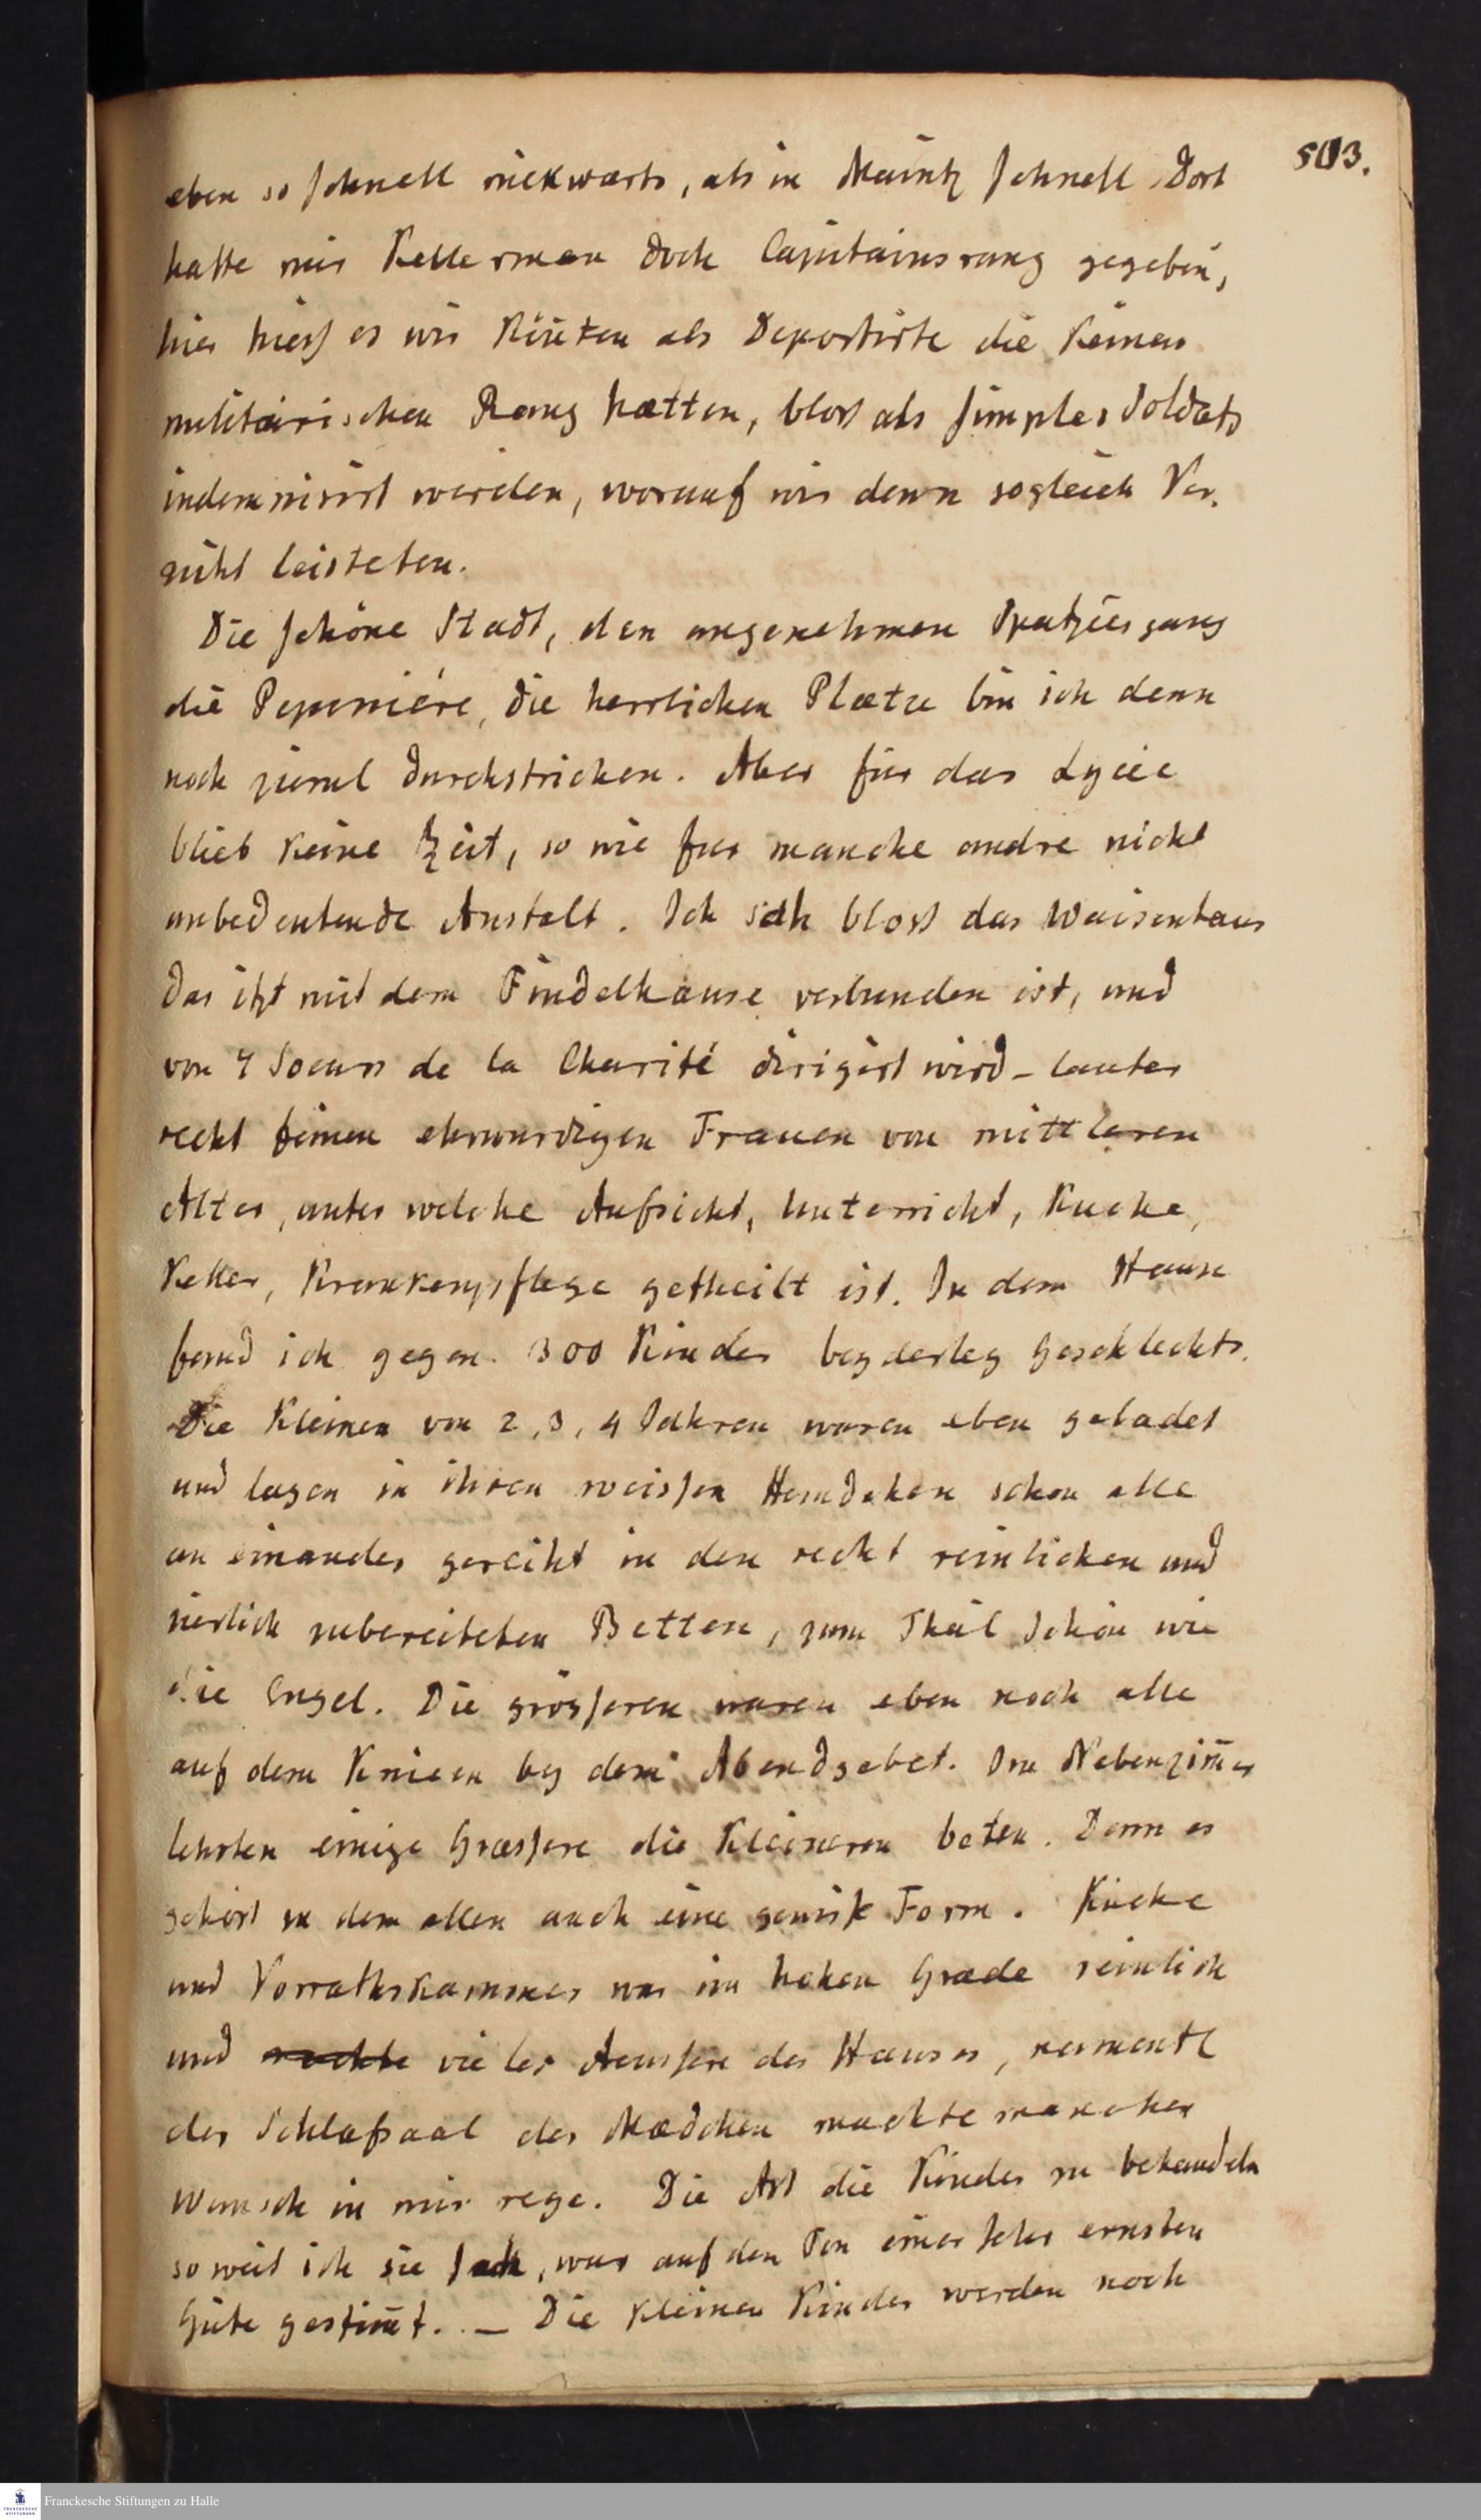 503.
eben so schnell rückwärts, als in Maintz schnell. Dort
hatte mir Kellerman doch Capitainsrang gegeben,
hier hiess es wir könten als Deportirte die keinen
militairischen Rang hætten, bloss als simples Soldats
indemnisirt werden, worauf wir denn sogleich Ver-
zicht leisteten.
Die schöne Stadt, den angenehmen Spatziergang
die Pepeniére, die herrlichen Plætze bin ich denn
noch zieml durchstrichen. Aber für das Lycée
blieb keine Zeit, so wie für manche andre nicht
unbedeutende Anstalt. Ich sah bloss das Waisenhaus
das itzt mit dem Findelhause verbunden ist, und
von 4 Soeurs de la Charité dirigirt wird – lauter
recht feinen ehrwurdigen Frauen von mittleren
Alter, unter welche Aufsicht, Unterricht, Kuche,
Keller, Krankenpflege getheilt ist. In dem Hause
fand ich gegen 300 Kinder beyderley Geschlechts.
Die Kleinen von 2, 3, 4 Jahren waren eben gebadet
und lagen in ihren weissen Hemdchen schon alle
an einander gereiht in den recht reinlichen und
zierlich zubereiteten Betten, zum Theil schön wie
die Engel. Die grösseren waren eben noch alle
auf dem Knieen bey dem Abendgebet. Im Nebenzim̄er
lehrten einige Grœssere die Kleineren beten. Denn es
gehört zu dem allen auch eine gewisse Form. Küche
und Vorrathskammer war im hohen Grade reinlich
und machte vieles Aeussere des Hauses, namentl
der Schlafsaal der Mædchen machte manchen
Wunsch in mir rege. Die Art die Kinder zu behandeln
so weit ich sie sah, war auf den Ton einer sehr ernsten
Güte gestim̄t. – Die kleinen Kinder werden noch
Franckesche Stiftungen zu Halle